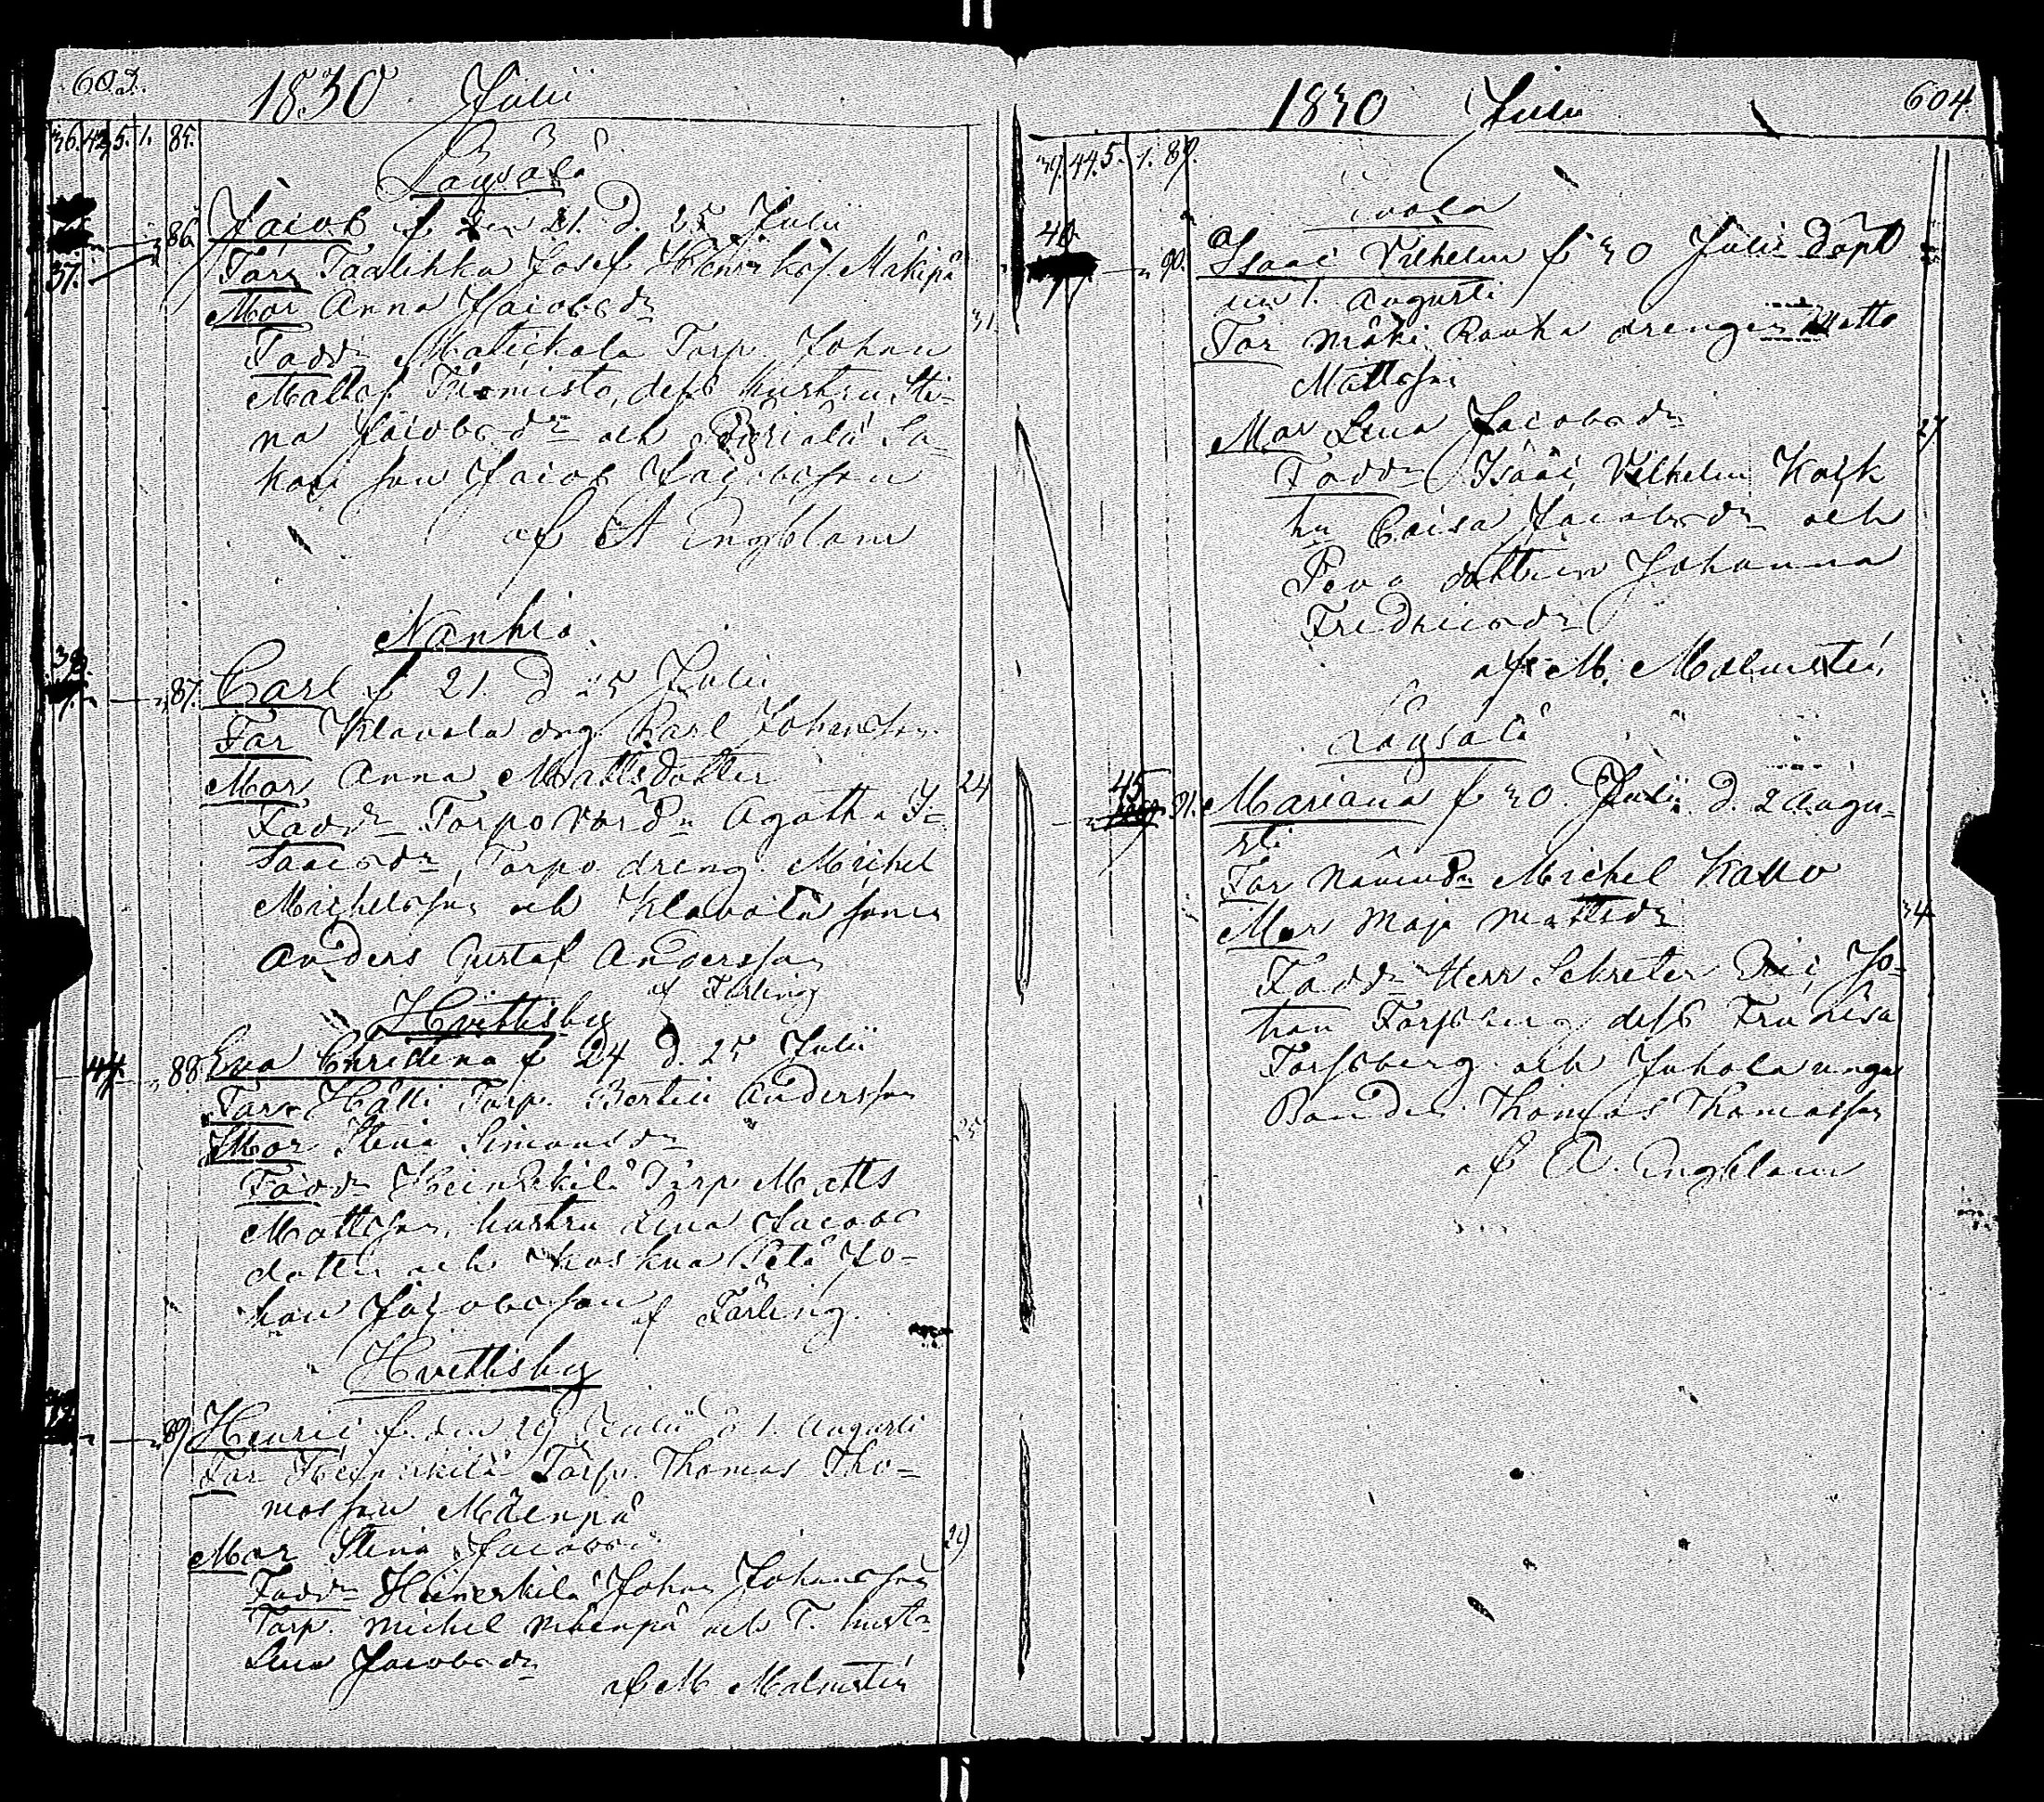 603.
1830 Julii
36. 42. 5. 1. 85.
Löysälä
86. Jacob f den 21. d. 25 Julii
37.
Far Taalikka Josef Henriksf. Mäkipä
Mor Anna Jacobsdr
31.
Faddr Matickala Torp. Johan
Mattsf Tuomisto, dess hustru Sti-
na Jacobsdr och
kari son Jacob Jacobsson
af A Engblom
Nanhia
38.
87. Carl f 21. d 25 Julii
Far Klavola drg Karl Johansson
Mor Anna Mattsdotter
24
Faddr Torpo Värdn Agatha I-
saacsdr, Torpo dreng Michel
Michelsson och Klavola sonen
Anders Gustaf Andersson
af Färling
Hvittisby
44. 88. Eva Christina f 24 d. 25 Julii
Far Hälli Torp. Bertill Andersson
Mor Stina Simonsdr
25
Faddr Heinikkilä Torp Matts
Mattsson, hustru Lena Jacobs
dotter och Koskua Petä Jo-
han Jacobsson af Färling.
Hvittisby
89. Henric f. den 29 Julii d 1. Augusti
Far Heinikkilä Torp. Thomas Tho-
masson Mäenpä
Mor Stina Jacobsdr
29
Faddr Heinikkilä Johan Johansson
Torp. Michel Mäenpä och T. hustr
Lena Jacobsdr
af M. Malmsten
1830 Julii 604
39. 44. 5. 1. 89.
40. 90. Isaac Vilhelm f 30 Julii döpt
den 1. Augusti
Far Mäki Rauka drengen Matts
Mattsson
Mor Lena Jacobsdr
27
Faddr Isaac Vilhelm Kask
hu Caisa Jacobsdr och
dottren Johanna
Fredricsdr
af M. Malmstén
Löysälä
45. 91. Mariana f 30. Julii d. 2 Augu-
sti
Far Nämndn Michel Kallo
Mor Maja Mattsdr
34
Faddr Herr Sekreter Eric Jo-
han Forssberg dess Fru Lisa
Forssberg och Juhola unga
Bonden Thomas Thomasson
af A. Engblom